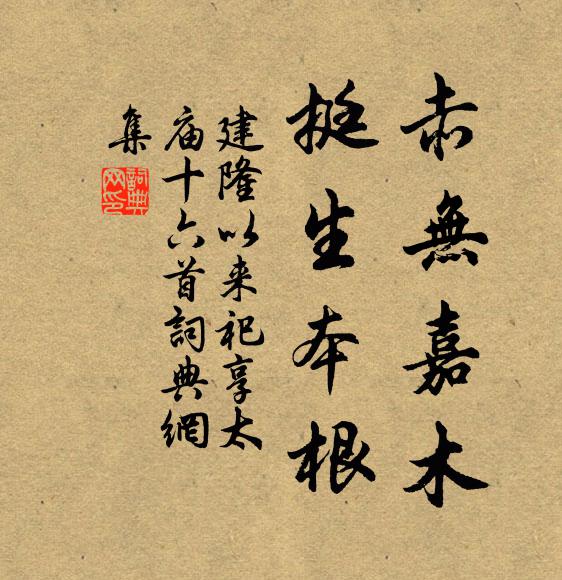 赤無嘉木
挺生本根
建隆以来祀享太
庙十六首詞典網
集
詞典
网印